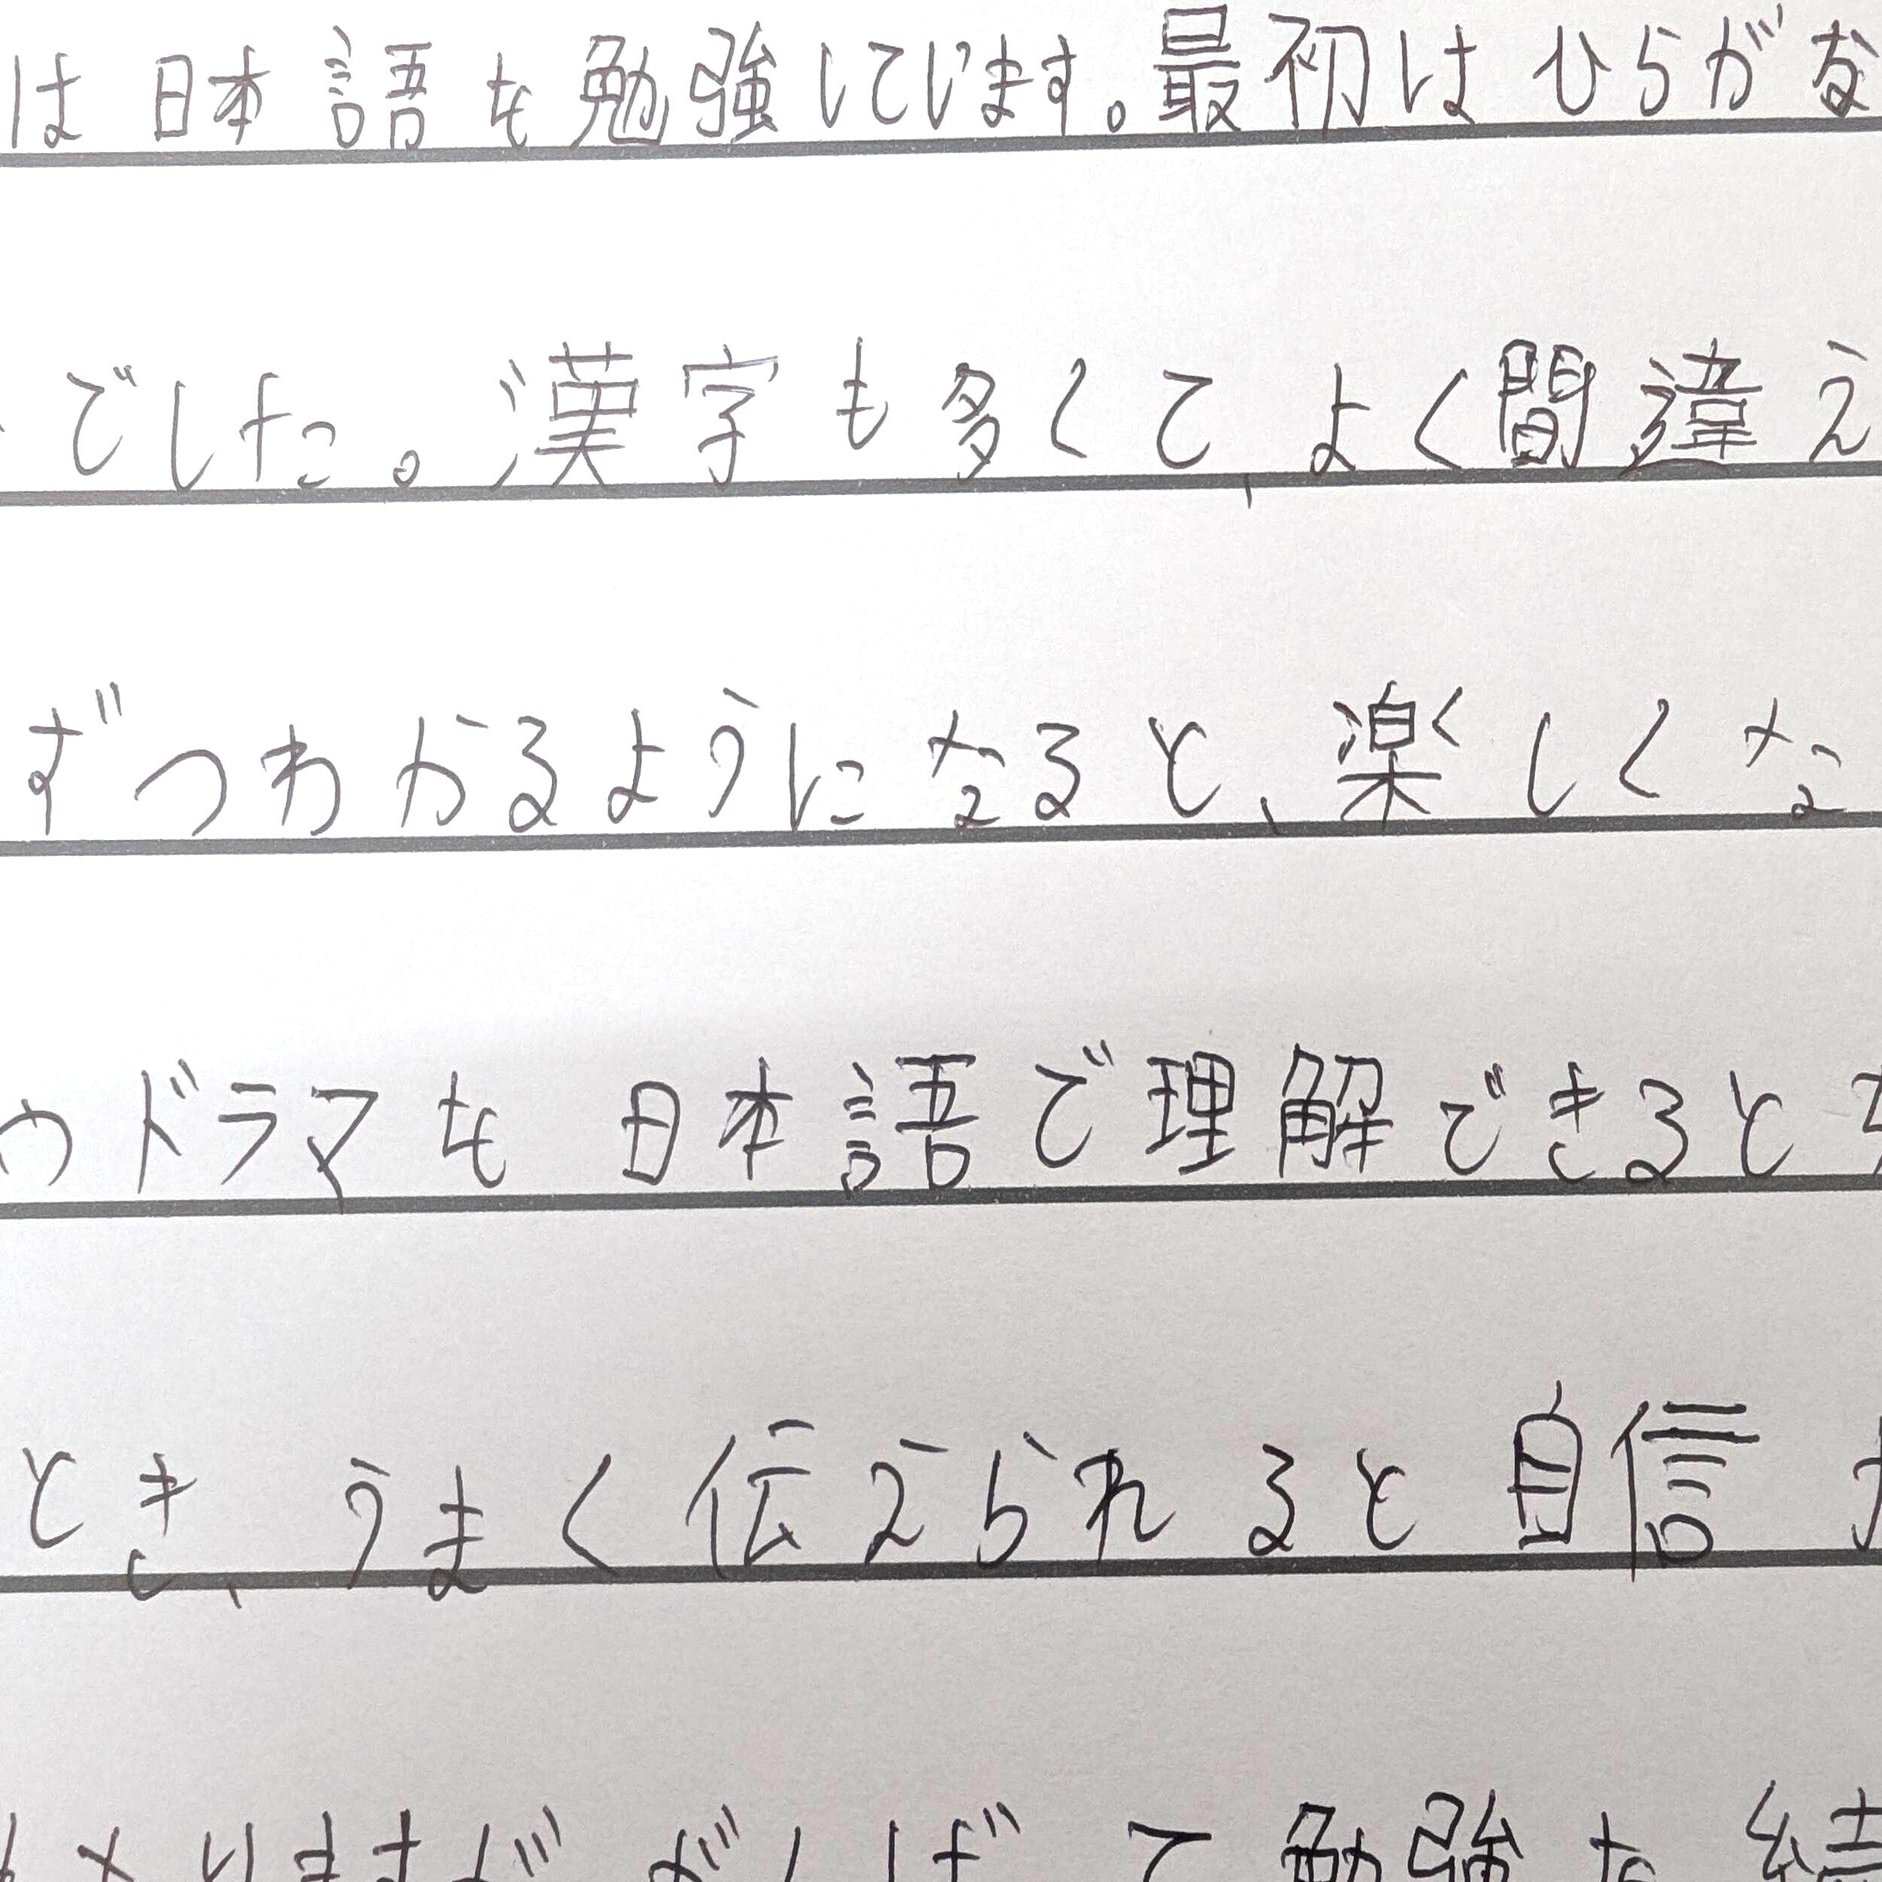 は日本語を勉強しています。最初はひらがな
でした。漢字も多くて、よく間違え
ずつわかるようになると、楽しくな
ドラマを日本語で理解できると
とき、うまく伝えられると自信
りますが がんばって勉強を続